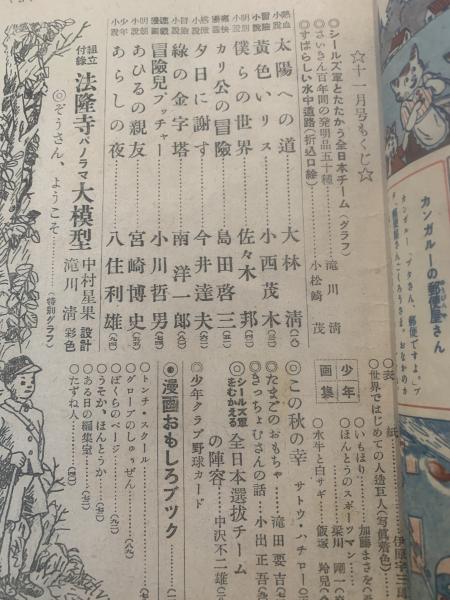 ☆十一月号もくじ☆
表紙 伊原宇三郎
◎世界ではじめての人造巨人(写真着色)
◎シールズ軍とたたかう全日本チーム(グラフ) 滝川清
◎さいきん百年間の発明品五十種
◎すばらしい水中道路(折込口絵) 小松崎茂
熱血小説 太陽への道 大林清
冒險小説 黄色いリス 小西茂木
明朗小説 僕らの世界 佐々木邦
痛快漫画 カリ公の冒險 島田啓三
感激小説 夕日に謝す 今井達夫
冒險小説 緑の金字塔 南洋一郎
連載漫画 冒險兒プッチャー 小川哲男
明朗小説 あひるの親友 宮崎博史
少年小説 あらしの夜 八住利雄
組立付録 法隆寺パノラマ大模型 中村星果設計 滝川清彩色
◎ぞうさん、ようこそ (特別グラフ)
少年画集
◎いもほり 加藤まさを
◎ほんとうのスポーツマン 梁川剛一
◎水牛と白サギ 飯塚羚兒
◎この秋の幸 サトウ・ハチロー
◎たまごのおもちゃ 滝田要吉
◎きっちょむさんの話 小出正吾
◎シールズ軍をむかえる 全日本選抜チームの陣容 中沢不二雄
◎少年クラブ野球カード
◉漫画おもしろブック
◎トンチ・スクール
◎グローブのしゅうぜん
◎ぼくらのページ
◎うそか、ほんとうか
◎ある日の編集室
◎たずね人
カンガルーの郵便屋さん